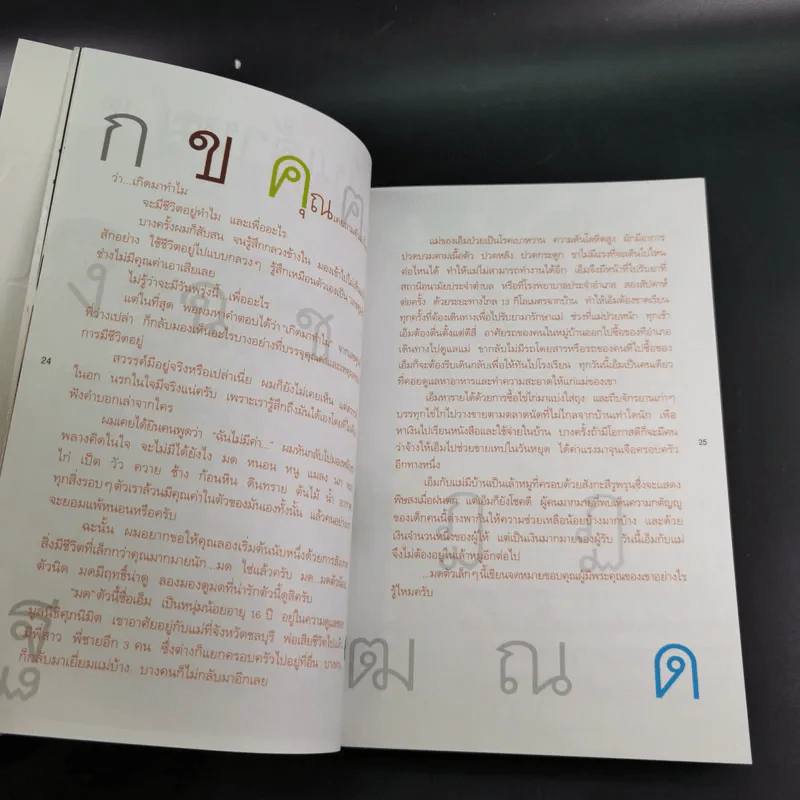 ก ข คุณ
ว่า...เกิดมาทำไม
จะมีชีวิตอยู่ทำไม และเพื่ออะไร
บางครั้งผมก็สับสน จนรู้สึกกลวงข้างใน มองเข้าไปไม่เห็น
สักอย่าง ใช้ชีวิตอยู่ไปแบบกลวงๆ รู้สึกเหมือนตัวเองเป็น
ช่างไม่มีคุณค่าเอาเสียเลย
ไม่รู้ว่าจะมีวันพรุ่งนี้ เพื่ออะไร
แต่ในที่สุด พอผมหาคำตอบได้ว่า"เกิดมาทำไม"
ที่ว่างเปล่า ก็กลับมองเห็นอะไรบางอย่างที่บรรจุคุณค่าและเหตุผล
การมีชีวิตอยู่
24
สวรรค์มีอยู่จริงหรือเปล่าเนี่ย ผมก็ยังไม่เคยเห็น แต่สวรรค์
ในอก นรกในใจมีจริงแน่ครับ เพราะเรารู้สึกถึงมันได้เองโดยที่ไม่
ฟังคำบอกเล่าจากใคร
ผมเคยได้ยินคนพูดว่า "ฉันไม่มีค่า..." ผมหันกลับไปมอง
พลางคิดในใจ จะไม่มีได้ยังไง มด หนอน หนู แมลง นก
ไก่ เป็ด วัว ควาย ช้าง ก้อนหิน ดินทราย ต้นไม้ น้ำ อากาศ
ทุกสิ่งรอบๆตัวเราล้วนมีคุณค่าในตัวของมันเองทั้งนั้น แล้วคนอย่าง
จะยอมแพ้หนอนหรือครับ
ฉะนั้น ผมอยากขอให้คุณลองเริ่มต้นนับหนึ่งด้วยการ
สิ่งมีชีวิตที่เล็กกว่าคุณมากมายนัก...มด ใช่แล้วครับ มด...มดตัว
ตัวนิด มดมีฤทธิ์น่าดู ลองมองดูมดที่น่ารักตัวนี้ดูสิครับ
"มด"ตัวนี้ชื่อเอ็ม เป็นหนุ่มน้อยอายุ 16 ปี อยู่ในความดูแลของ
มูลนิธิศุภนิมิต เขาอาศัยอยู่กับแม่ที่จังหวัดชลบุรี พ่อเสียชีวิตไปแล้ว
มีพี่สาว พี่ชายอีก 3 คน ซึ่งต่างก็แยกครอบครัวไปอยู่ที่อื่น บางคน
ก็กลับมาเยี่ยมแม่บ้าง บางคนก็ไม่กลับมาอีกเลย
แม่ของเอ็มป่วยเป็นโรคเบาหวาน ความดันโลหิตสูง มักมีอาการ
ปวดบวมตามเนื้อตัว ปวดหลัง ปวดกระดูก ขาไม่มีแรงที่จะเดินไปไหน
ต่อไหนได้ ทำให้แม่ไม่สามารถทำงานได้อีก เอ็มจึงมีหน้าที่ไปรับยาที่
สถานีอนามัยประจำตำบล หรือที่โรงพยาบาลประจำอำเภอ สองสัปดาห์
ต่อครั้ง ด้วยระยะทางไกล 13 กิโลเมตรจากบ้าน ทำให้เอ็มขาดเรียน
ทุกครั้งที่ต้องเดินทางเพื่อไปรับยามารักษาแม่ ช่วงที่แม่ป่วยหนัก ทุกเช้า
เอ็มต้องตื่นตั้งแต่ตีสี่ อาศัยรถของคนในหมู่บ้านออกไปซื้อของที่อำเภอ
เดินทางไปดูแลแม่ ขากลับไม่มีรถโดยสารหรือรถของคนที่ไปซื้อของ
เอ็มก็จะต้องรีบเดินกลับเพื่อให้ทันไปโรงเรียน ทุกวันนี้เอ็มเป็นคนเดียว
ที่คอยดูแลหาอาหารและทำความสะอาดให้แก่แม่ของเขา
เอ็มหารายได้ด้วยการซื้อไข่ไก่มาแบ่งใส่ถุง และถีบจักรยานเก่าๆ
บรรทุกไข่ไก่ไปวางขายตามตลาดนัดที่ไม่ไกลจากบ้านเท่าใดนัก เพื่อ
หาเงินไปเรียนหนังสือและใช้จ่ายในบ้าน บางครั้งถ้ามีโอกาสดีก็จะมีคน
ว่าจ้างให้เอ็มไปช่วยขายเทปในวันหยุด ได้ค่าแรงมาจุนเจือครอบครัว
อีกทางหนึ่ง
25
เอ็มกับแม่มีบ้านเป็นเล้าหมูที่ครอบด้วยสังกะสีรูพรุนซึ่งจะแสดง
พิษสงเมื่อฝนตก แต่เอ็มก็ยังโชคดี ผู้คนมากมายที่พบเห็นความกตัญญู
ของเด็กคนนี้ต่างพากันให้ความช่วยเหลือน้อยบ้างมากบ้าง และด้วย
เงินจำนวนหนึ่งของผู้ให้ แต่เป็นเงินมากมายของผู้รับ วันนี้เอ็มกับแม่
จึงไม่ต้องอยู่ในเล้าหมูอีกต่อไป
...มดตัวเล็กๆนี้เขียนจดหมายขอบคุณผู้มีพระคุณของเขาอย่างไร
รู้ไหมครับ
ฒ ณ ด